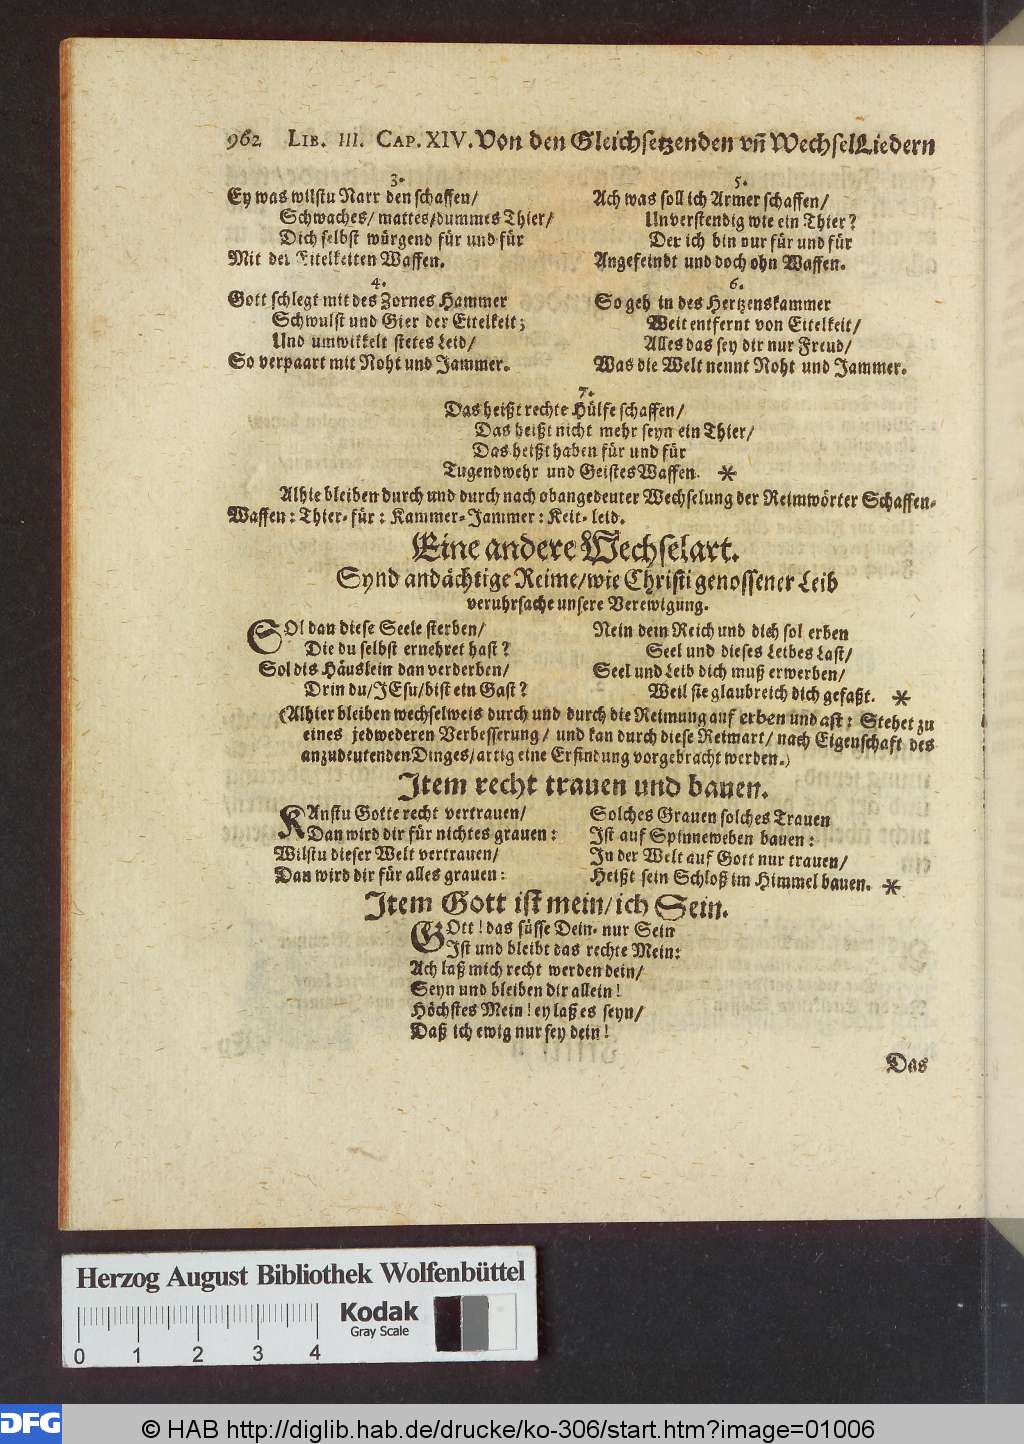 962 LIB. III. CAP. XIV. Von den Gleichsetzenden vñ WechselLiedern
3.
Ey was wilstu Narr den schaffen/
Schwaches/ mattes/dummes Thier/
Dich selbst würgend für und für
Mit den Eitelkeiten Waffen.
4.
Gott schlegt mit des Zornes Hammer
Schwulst und Gier der Eitelkeit;
Und umwikkelt stetes Leid/
So verpaart mit Noht und Jammer.
5.
Ach was soll ich Armer schaffen/
Unverstendig wie ein Thier?
Der ich bin nur für und für
Angefeindt und doch ohn Waffen.
6.
So geh in des Hertzenskammer
Weit entfernt von Eitelkeit/
Alles das sey dir nur Freud/
Was die Welt nennt Noht und Jammer.
7.
Das heißt rechte Hülfe schaffen/
Das heißt nicht mehr seyn ein Thier/
Das heißt haben für und für
Tugendwehr und Geistes Waffen. *
Alhie bleiben durch und durch nach obangedeuter Wechselung der Reimwörter Schaffen-
Waffen: Thier- für: Kammer- Jammer: Keit- leid.
Eine andere Wechselart.
Synd andächtige Reime/wie Christi genossener Leib
veruhrsache unsere Verewigung.
SOl dan diese Seele sterben/
Die du selbst ernehret hast?
Sol dis Häuslein dan verderben/
Drin du/JEsu/bist ein Gast?
Nein dein Reich und dich sol erben
Seel und dieses Leibes Last/
Seel und Leib dich muß erwerben/
Weil sie glaubreich dich gefaßt. *
(Alhier bleiben wechselweis durch und durch die Reimung auf erben und ast: Stehet zu
eines jedwederen Verbesserung/ und kan durch diese Reimart/ nach Eigenschaft des
anzudeutenden Dinges/artig eine Erfindung vorgebracht werden.)
Item recht trauen und bauen.
KAnstu Gotte recht vertrauen/
Dan wird dir für nichtes grauen:
Wilstu dieser Welt vertrauen/
Dan wird dir für alles grauen:
Solches Grauen solches Trauen
Ist auf Spinneweben bauen:
In der Welt auf Gott nur trauen/
Heißt sein Schloß im Himmel bauen. *
Item Gott ist mein/ich Sein.
GOtt! das süsse Dein- nur Sein
Ist und bleibt das rechte Mein:
Ach laß mich recht werden dein/
Seyn und bleiben dir allein!
Höchstes Mein! ey laß es seyn/
Daß ich ewig nur sey dein!
Das
Herzog August Bibliothek Wolfenbüttel
Kodak
Gray Scale
0 1 2 3 4
DFG
© HAB http://diglib.hab.de/drucke/ko-306/start.htm?image=01006